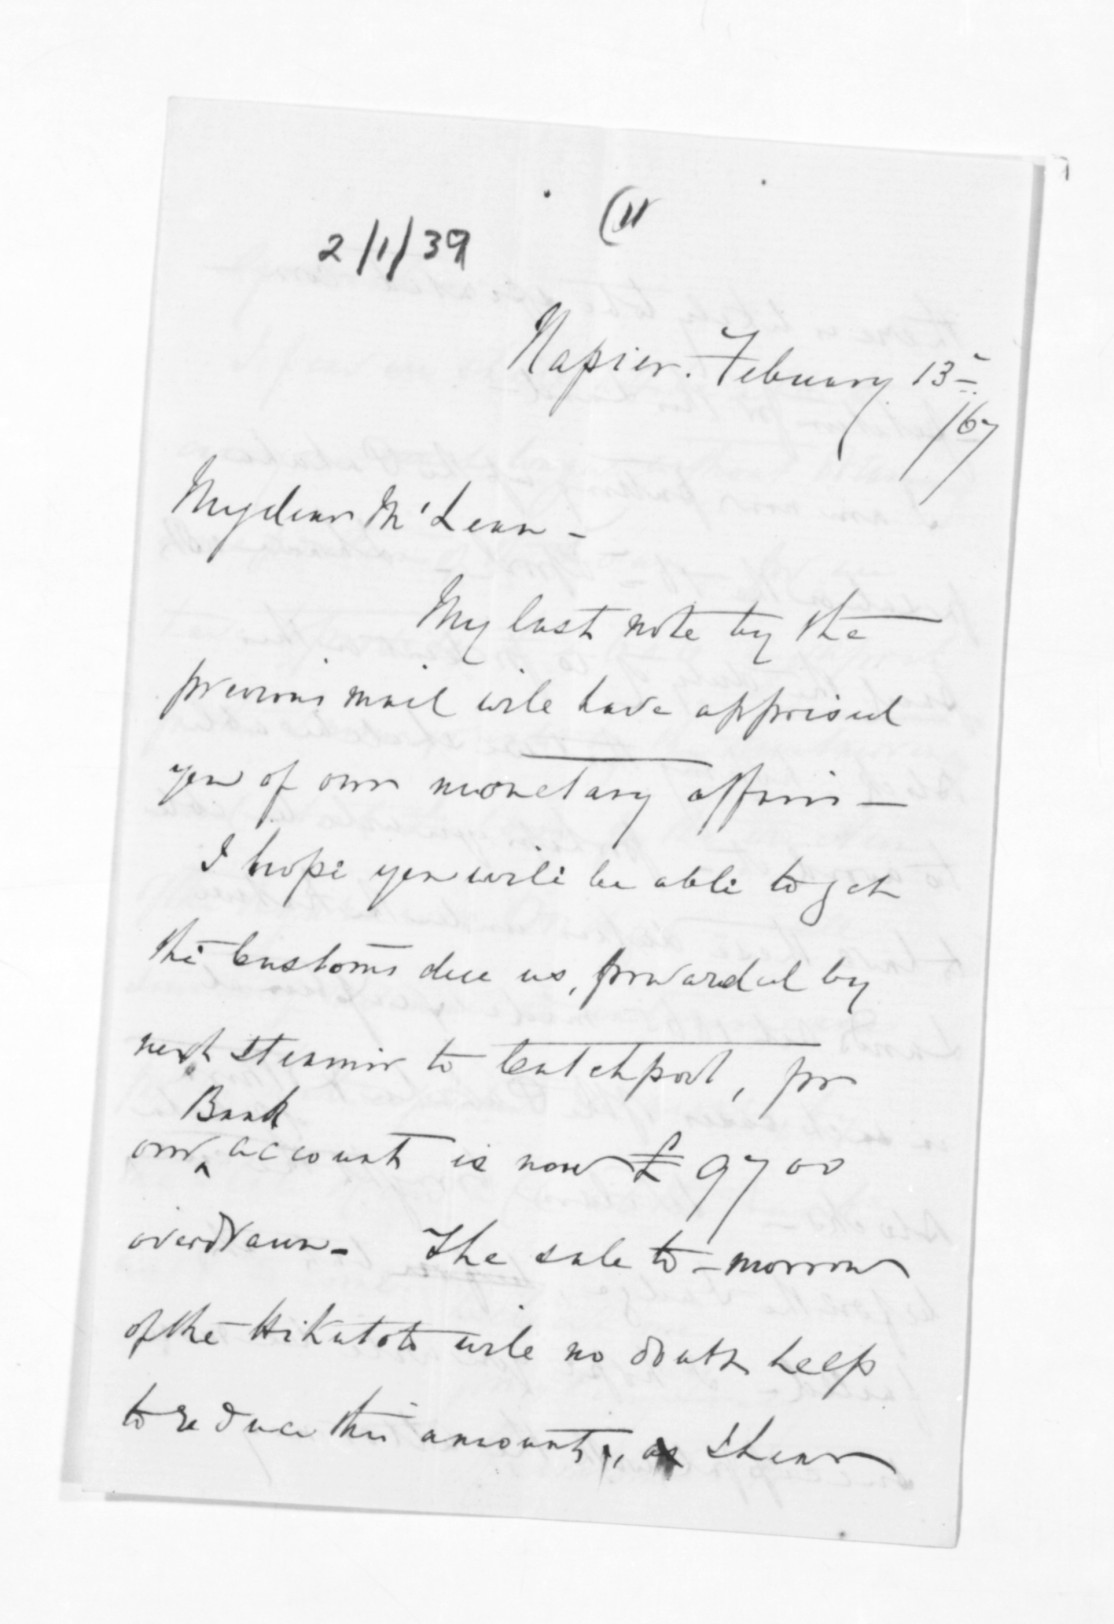 (11
2/1/39
Napier. February 13-
/67
My dear McLean -
My last note by the
previous mail will have apprised
you of our monetary affairs -
I hope you will be able to get
the Customs due us, forwarded by
next steamer to Catchpool, for
Bank
our ^ account is now £9700
overdrawn - The sale to-morrow
of the Hikutoto will no doubt help
to reduce this amount, as I hear